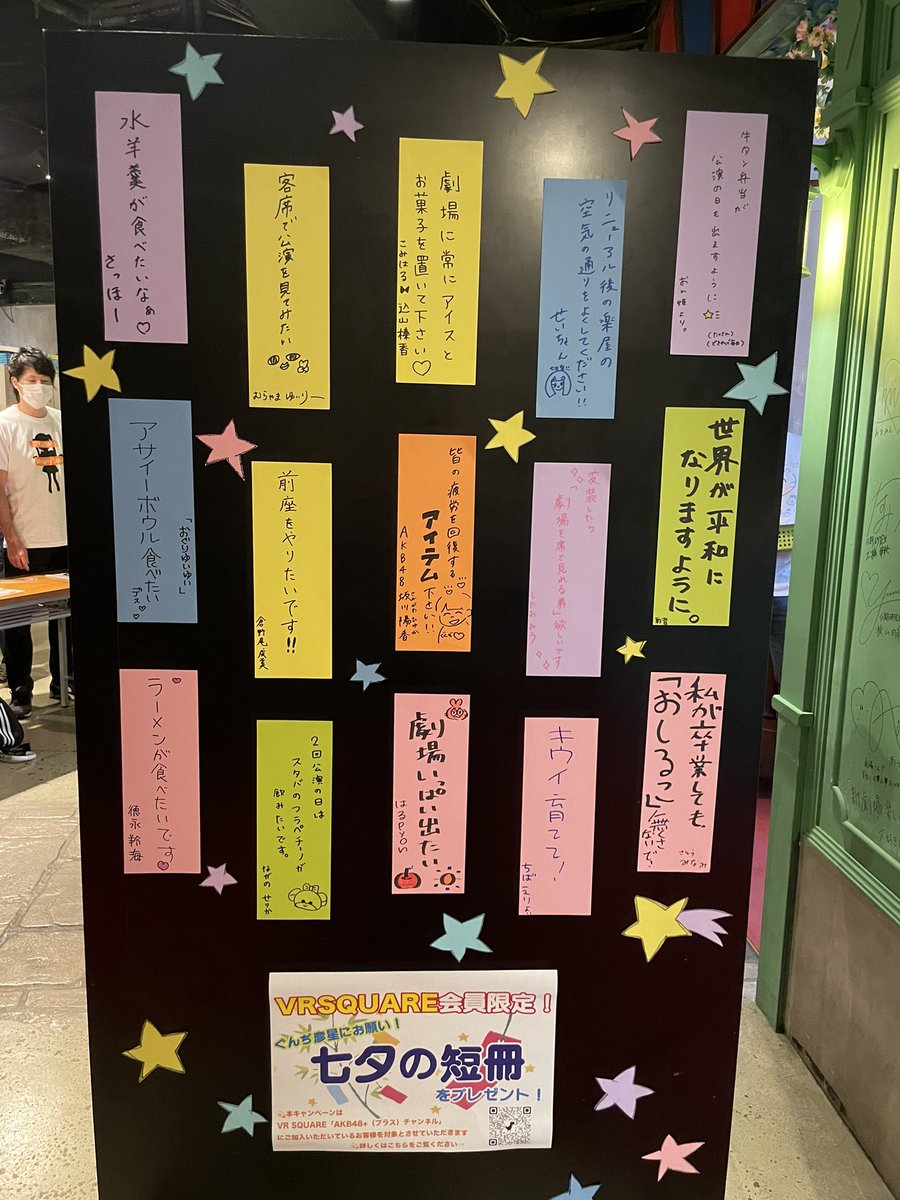 水羊羹が食べたいなぁ♡
さっほー
客席で公演を見てみたい
むらやまゆいりー
劇場に常にアイスと
お菓子を置いて下さい♡
こみはる 込山榛香
リニューアル後の楽屋の
空気の通りをよくしてください!!
せいちゃん
牛タン弁当が
公演の日も出ますように☆
アサイーボウル食べたい
デス♡
「おぐりゆいゆい」
前座をやりたいです!!
倉野尾成美
皆の疲労を回復する
アイテム下さい!!
AKB48 坂川陽香
変装したら
劇場を席で見れる券」欲しいです
したおみう
世界が平和に
なりますように。
ラーメンが食べたいです
徳永羚海
2回公演の日は
スタバのフラペチーノが
飲みたいです。
ながの せりか
劇場いっぱい出たい
はるpyon
キウイ育て!
ちばえりい
私が卒業しても、
「おしるこ」無くさないで。
さとう
みなみ
VRSQUARE会員限定!
ぐんち彦星にお願い!
七夕の短冊
をプレゼント!
本キャンペーンは
VR SQUARE「AKB48+(プラス)チャンネル」
にご加入いただいているお客様を対象とさせていただきます
詳しくはこちらをご覧ください